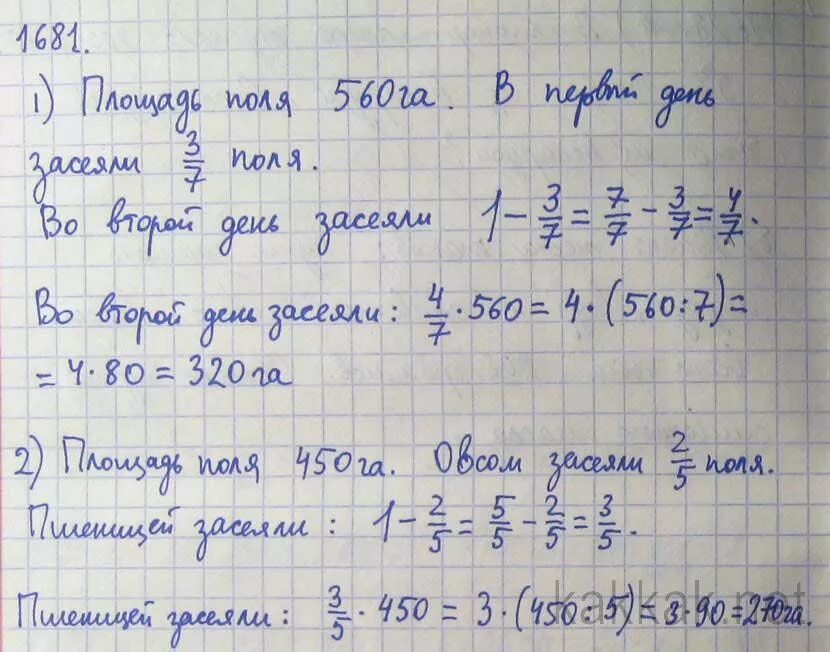 1681.
1) Площадь поля 560га. В первый день
засеяли 3/7 поля.
Во второй день засеяли 1 - 3/7 = 7/7 - 3/7 = 4/7.
Во второй день засеяли: 4/7 · 560 = 4 · (560:7) =
= 4 · 80 = 320га
2) Площадь поля 450га. Овсом засеяли 2/5 поля.
Пшеницей засеяли: 1 - 2/5 = 5/5 - 2/5 = 3/5.
Пшеницей засеяли: 3/5 · 450 = 3 · (450:5) = 3·90 = 270га.
kakkak.net